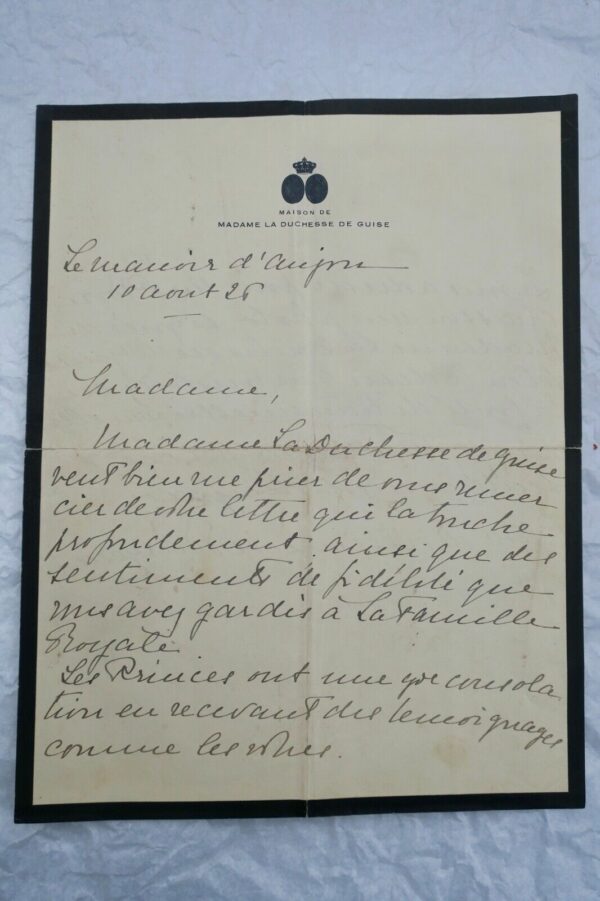 MAISON DE
MADAME LA DUCHESSE DE GUISE
Le manoir d'Anjou
10 aout 26
Madame,
Madame La Duchesse de guise
veut bien me prier de vous remer
cier de votre lettre qui la touche
profondement ainsi que des
sentiments de fidélité que
vous avez gardés à La Famille
Royale
Les Princes ont une gde consola
tion en recevant des temoignages
comme les votres.